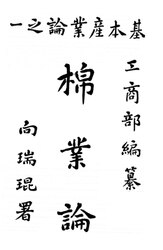 基本産業論之一
工商部編纂
棉業論
向瑞琨署